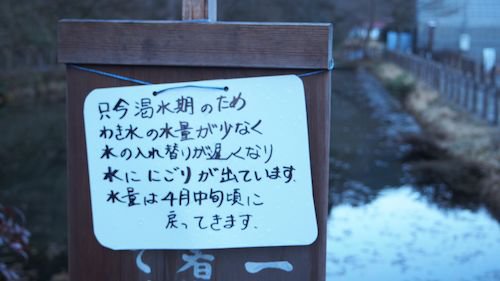 只今渇水期のため
わき水の水量が少なく
水の入れ替りが遅くなり
水ににごりが出ています.
水量は4月中旬頃に
戻ってきます.